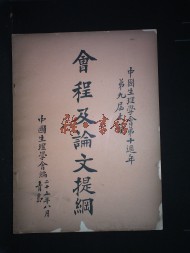 中國生理學會第十週年
第九屆
會程及論文提綱
中國生理學會編
二十五年八月